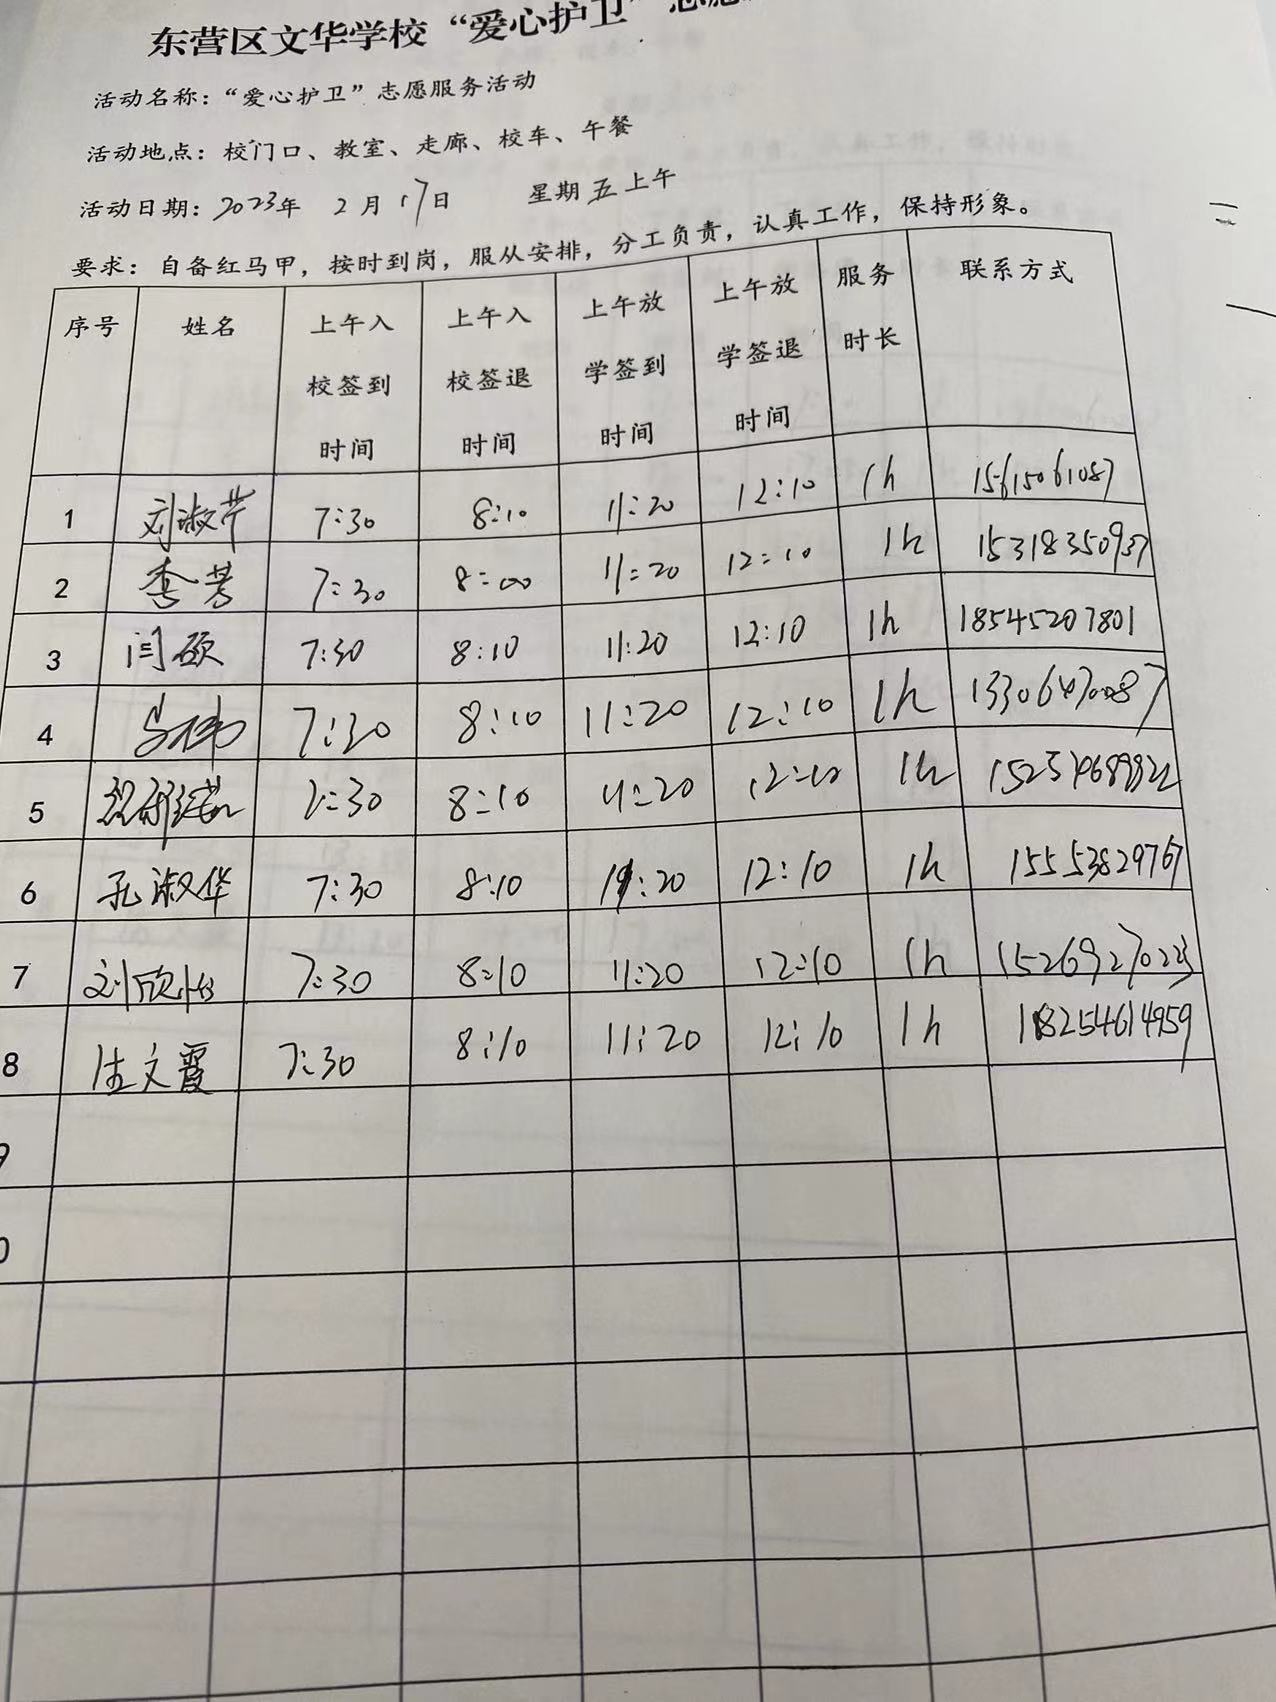 东营区文华学校“爱心护卫”志愿
活动名称：“爱心护卫”志愿服务活动
活动地点：校门口、教室、走廊、校车、午餐
活动日期：2023年 2月17日 星期五上午
要求：自备红马甲，按时到岗，服从安排，分工负责，认真工作，保持形象。
序号 姓名 上午入校签到时间 上午入校签退时间 上午放学签到时间 上午放学签退时间 服务时长 联系方式
1 刘淑芹 7:30 8:10 11:20 12:10 1h 15615061087
2 李芳 7:30 8:00 11:20 12:10 1h 15318350937
3 闫硕 7:30 8:10 11:20 12:10 1h 18545207801
4 7:30 8:10 11:20 12:10 1h 13306470087
5 7:30 8:10 11:20 12:10 1h
6 孔淑华 7:30 8:10 11:20 12:10 1h 15553829767
7 刘欣怡 7:30 8:10 11:20 12:10 1h 15269270223
8 文霞 7:30 8:10 11:20 12:10 1h 18254614959
9
0